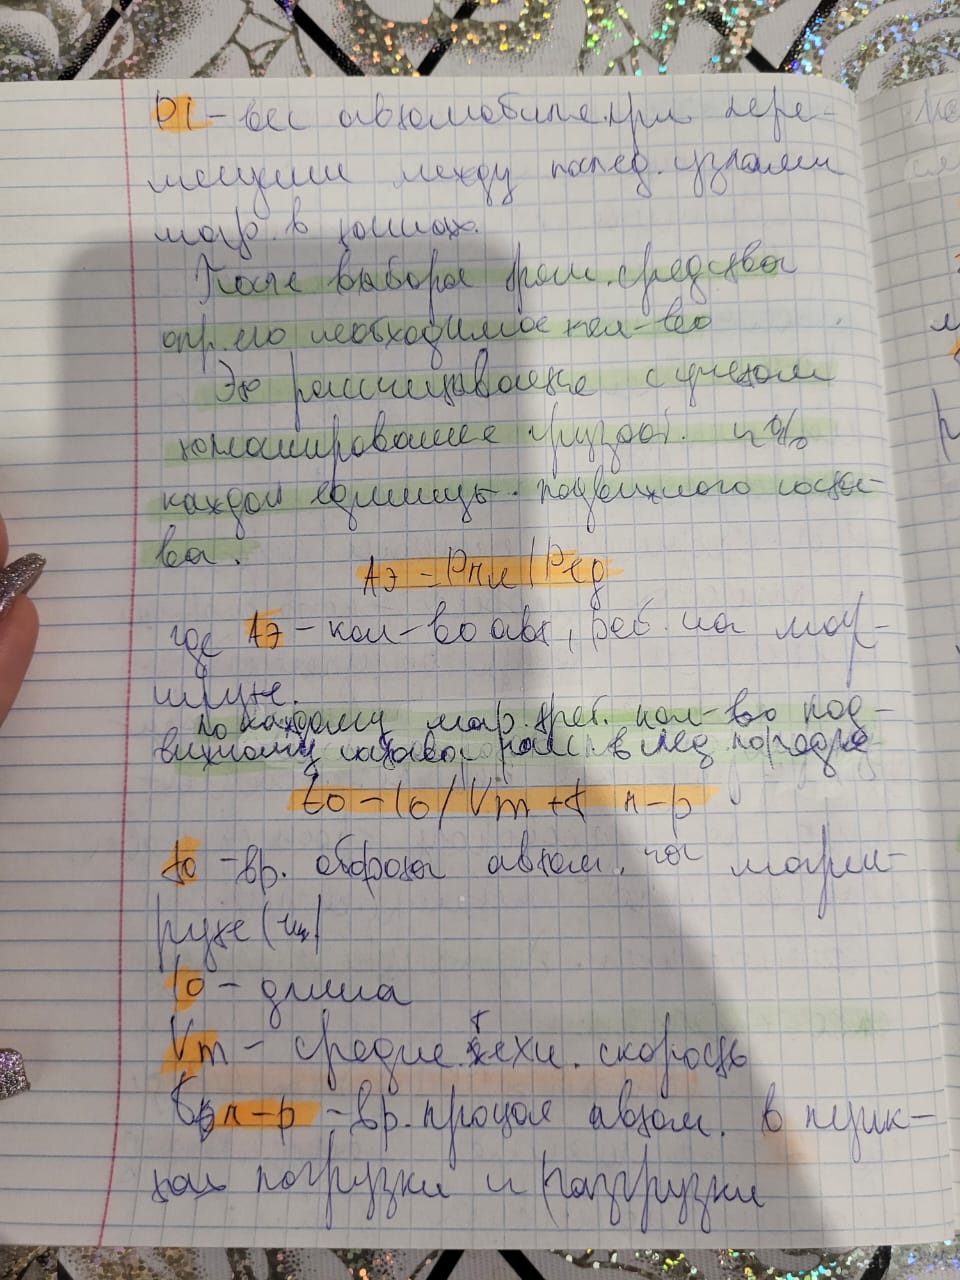 Pi - вес автомобиле при пере-
мещении между послед. узлами
мар. в тоннах.
После выбора тран. средства
опр. его необходимое кол-во
Это рассчитывается с учетом
грузов. и %
каждой единицы подвижного соста-
ва.
Аэ = Рпл / Ред
где Аэ - кол-во авт, раб. на мар-
шруте.
по каждому мар. треб. кол-во под-
вижному состава рас. в след порядке
to - lo / Vm + t п-р
to - вр. оборота автом. на марш-
руте (ч)
lo - длина
Vm - средне. техн. скорость
t п-р - вр. простоя автом. в пунк-
тах погрузки и разгрузки